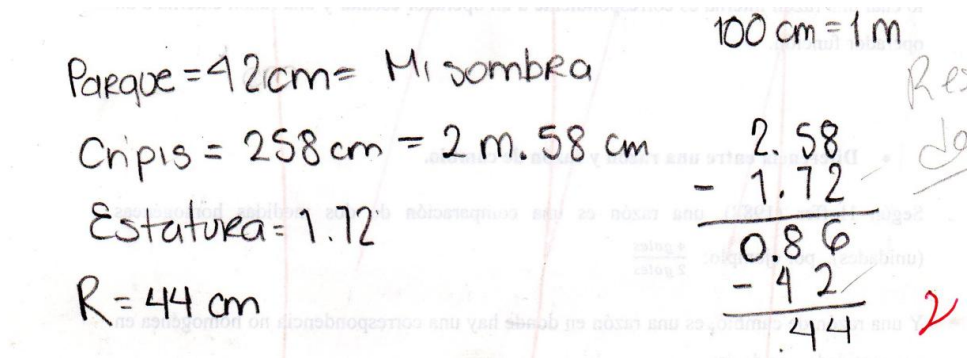 100 cm = 1 m
Parque = 42 cm = Mi sombra
Cripis = 258 cm = 2 m. 58 cm
Estatura = 1.72
R = 44 cm
2.58
- 1.72
0.86
- 42
.44
2